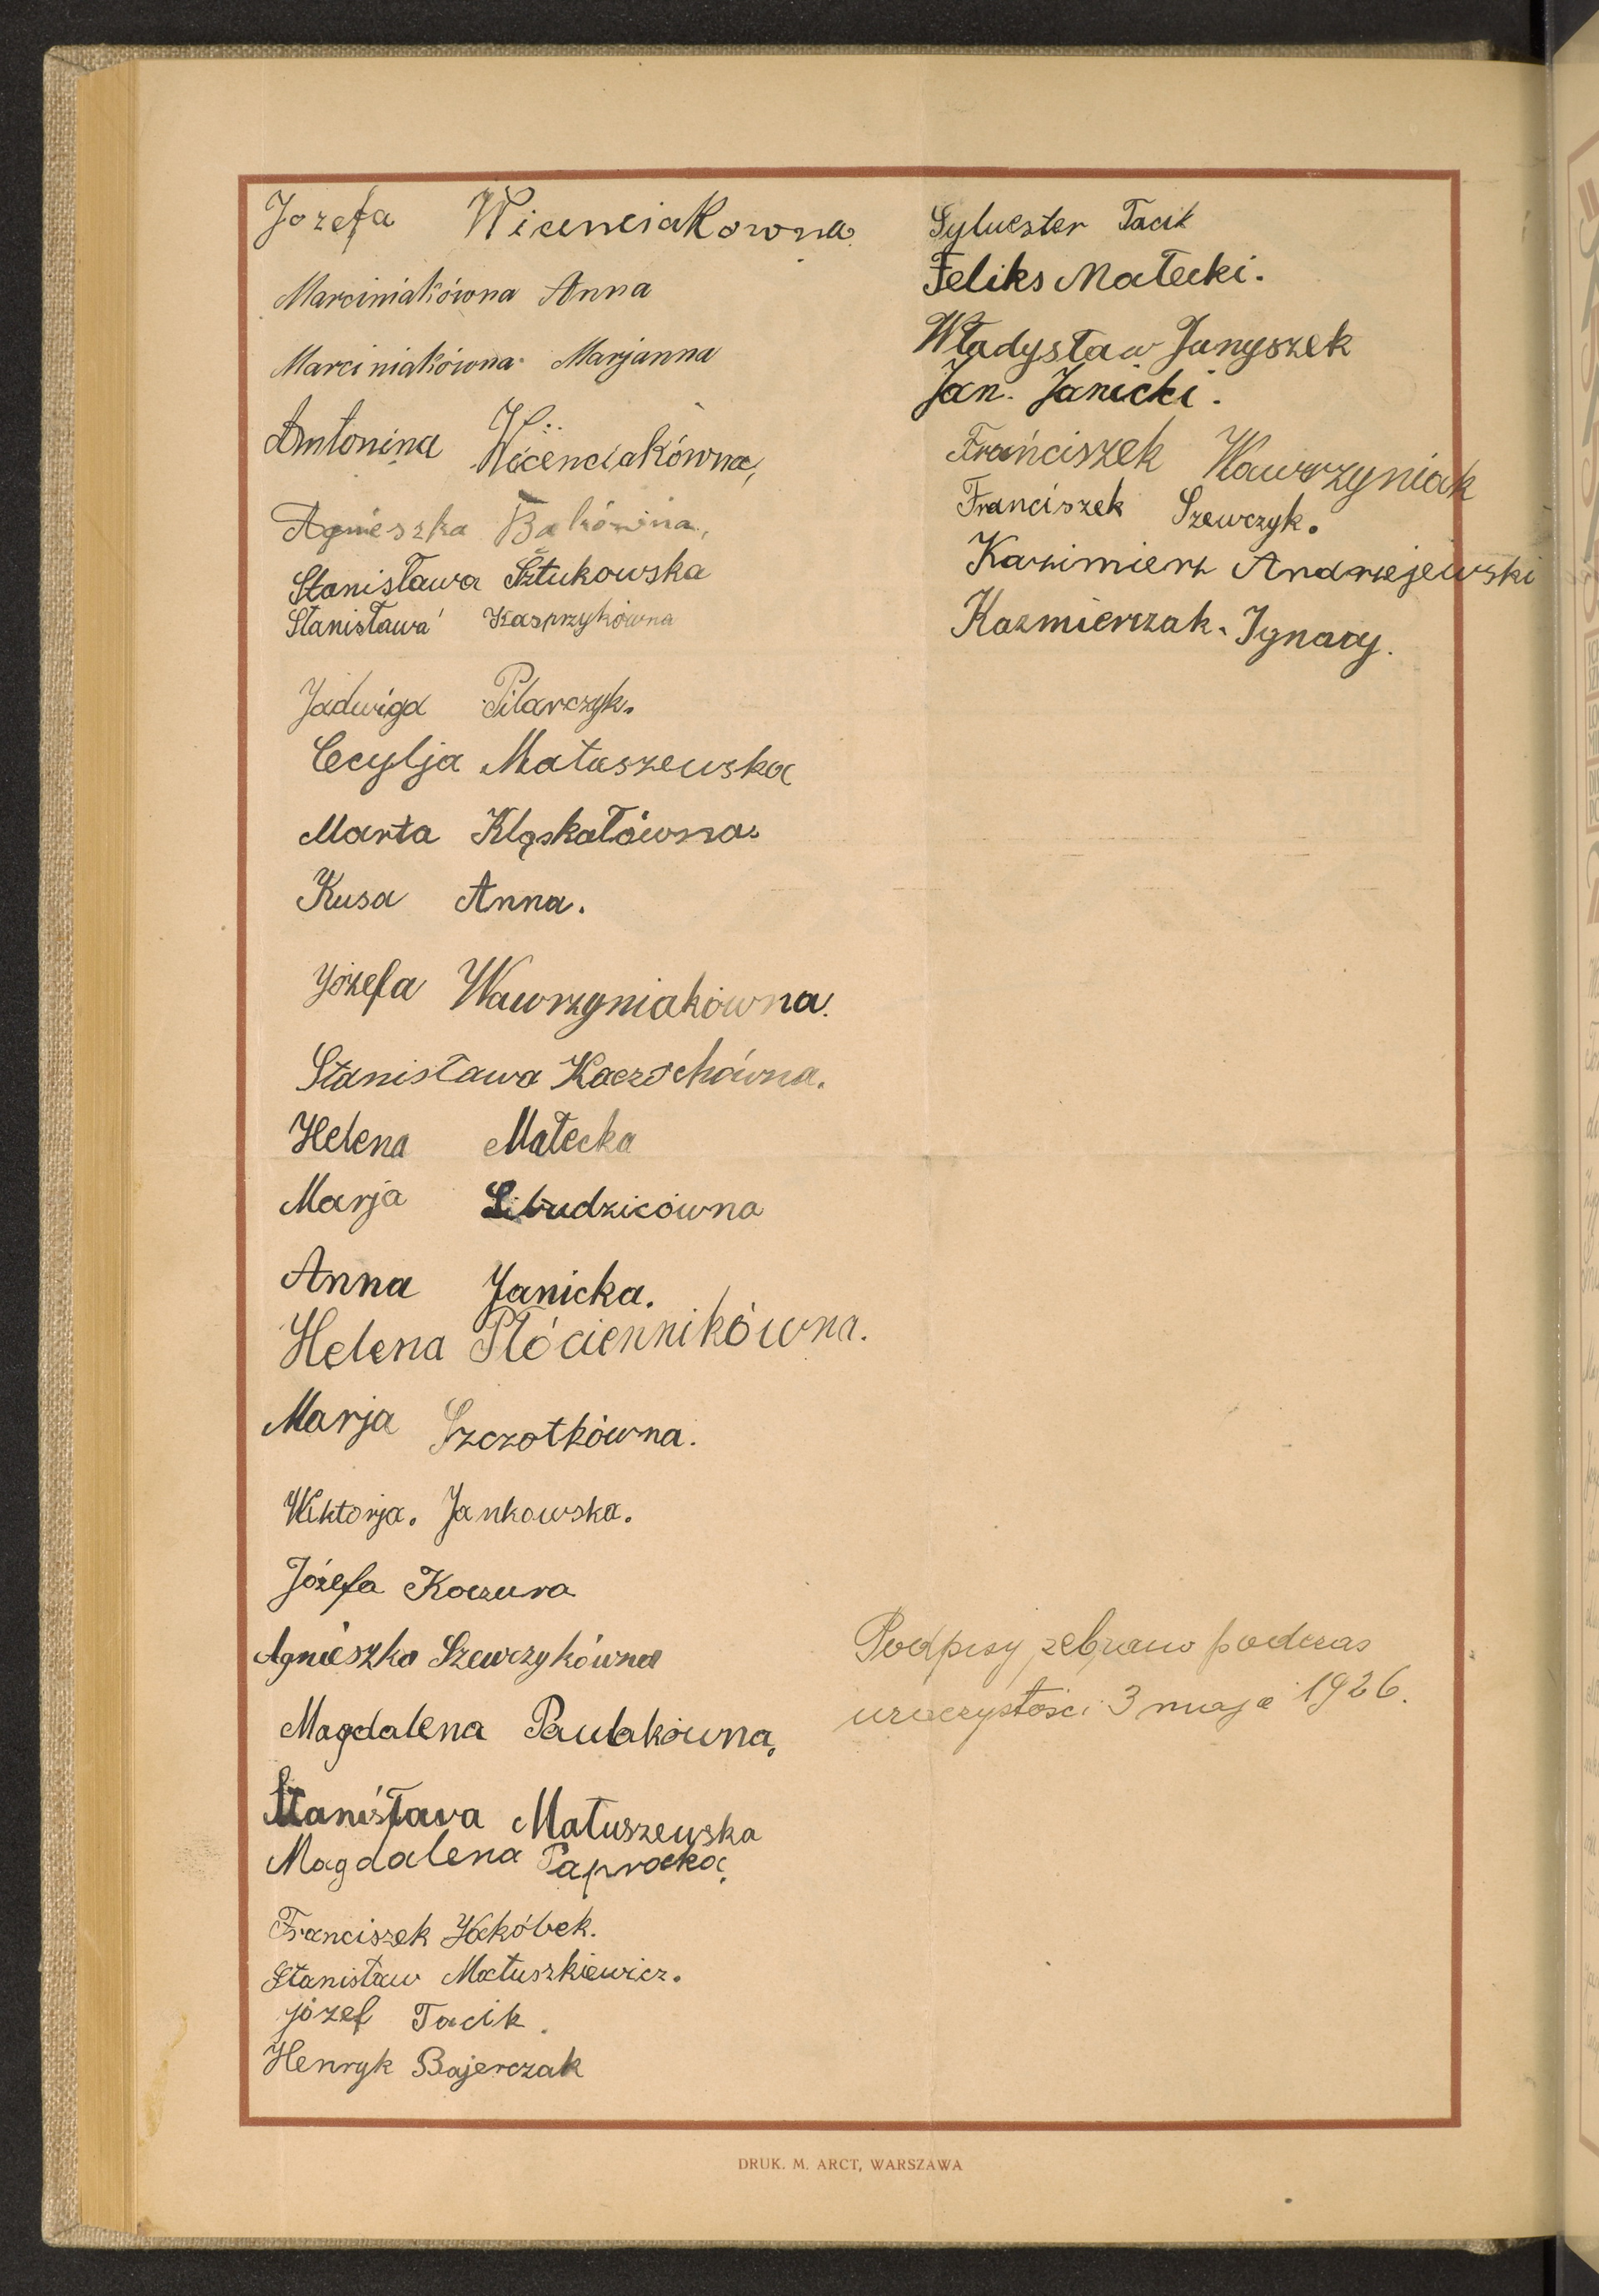 Jozefa Wicenciakowna
Marciniakówna Anna
Marciniakówna Marjanna
Antonina Wicenciakówna,
Agnieszka Bąkówna,
Stanisława Sztukowska
Stanisława Kasprzykówna
Jadwiga Pilarczyk.
Cecylja Mataszewska
Marta Kląskałówna.
Kusa Anna.
Józefa Wawrzyniakówna.
Stanisława Kaczochówna.
Helena Małecka
Marja Libudzicówna
Anna Janicka.
Helena Płóciennikówna.
Marja Szczotkówna.
Wiktorja. Jankowska.
Józefa Koczura
Agnieszka Szewczykówna
Magdalena Paulakówna,
Stanisława Matuszewska
Magdalena Paprocka,
Franciszek Jakóbek.
Stanisław Matuszkiewicz.
józef Tacik.
Henryk Bajerczak
Sylwester Tacik
Feliks Małecki.
Władysław Janyszek
Jan. Janicki.
Frańciszek Wawrzyniak
Franciszek Szewczyk.
Kazimierz Andrzejewski
Kazmierczak. Ignacy.
Podpisy zebrano podczas
uroczystości 3 maja 1926.
DRUK. M. ARCT, WARSZAWA